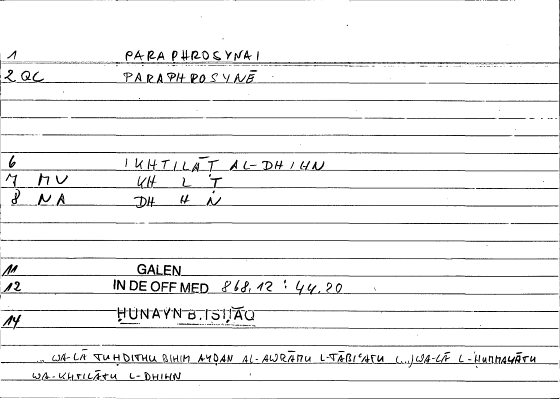 1 PARAPHROSYNAI
2 QC PARAPHROSYNĒ
6 IKHTILĀṬ AL-DHIHN
7 MV KH L Ṭ
8 NA DH H N
11 GALEN
12 IN DE OFF MED 868,12 : 44.20
14 ḤUNAYN B. ISḤĀQ
WA-LĀ TUḤDITHU BIHIM AYḌAN AL-AWRĀMU L-TĀBIʿATU (...) WA-LĀ L-ḤUMMAYĀTU
WA-KHTILĀṬU L-DHIHN